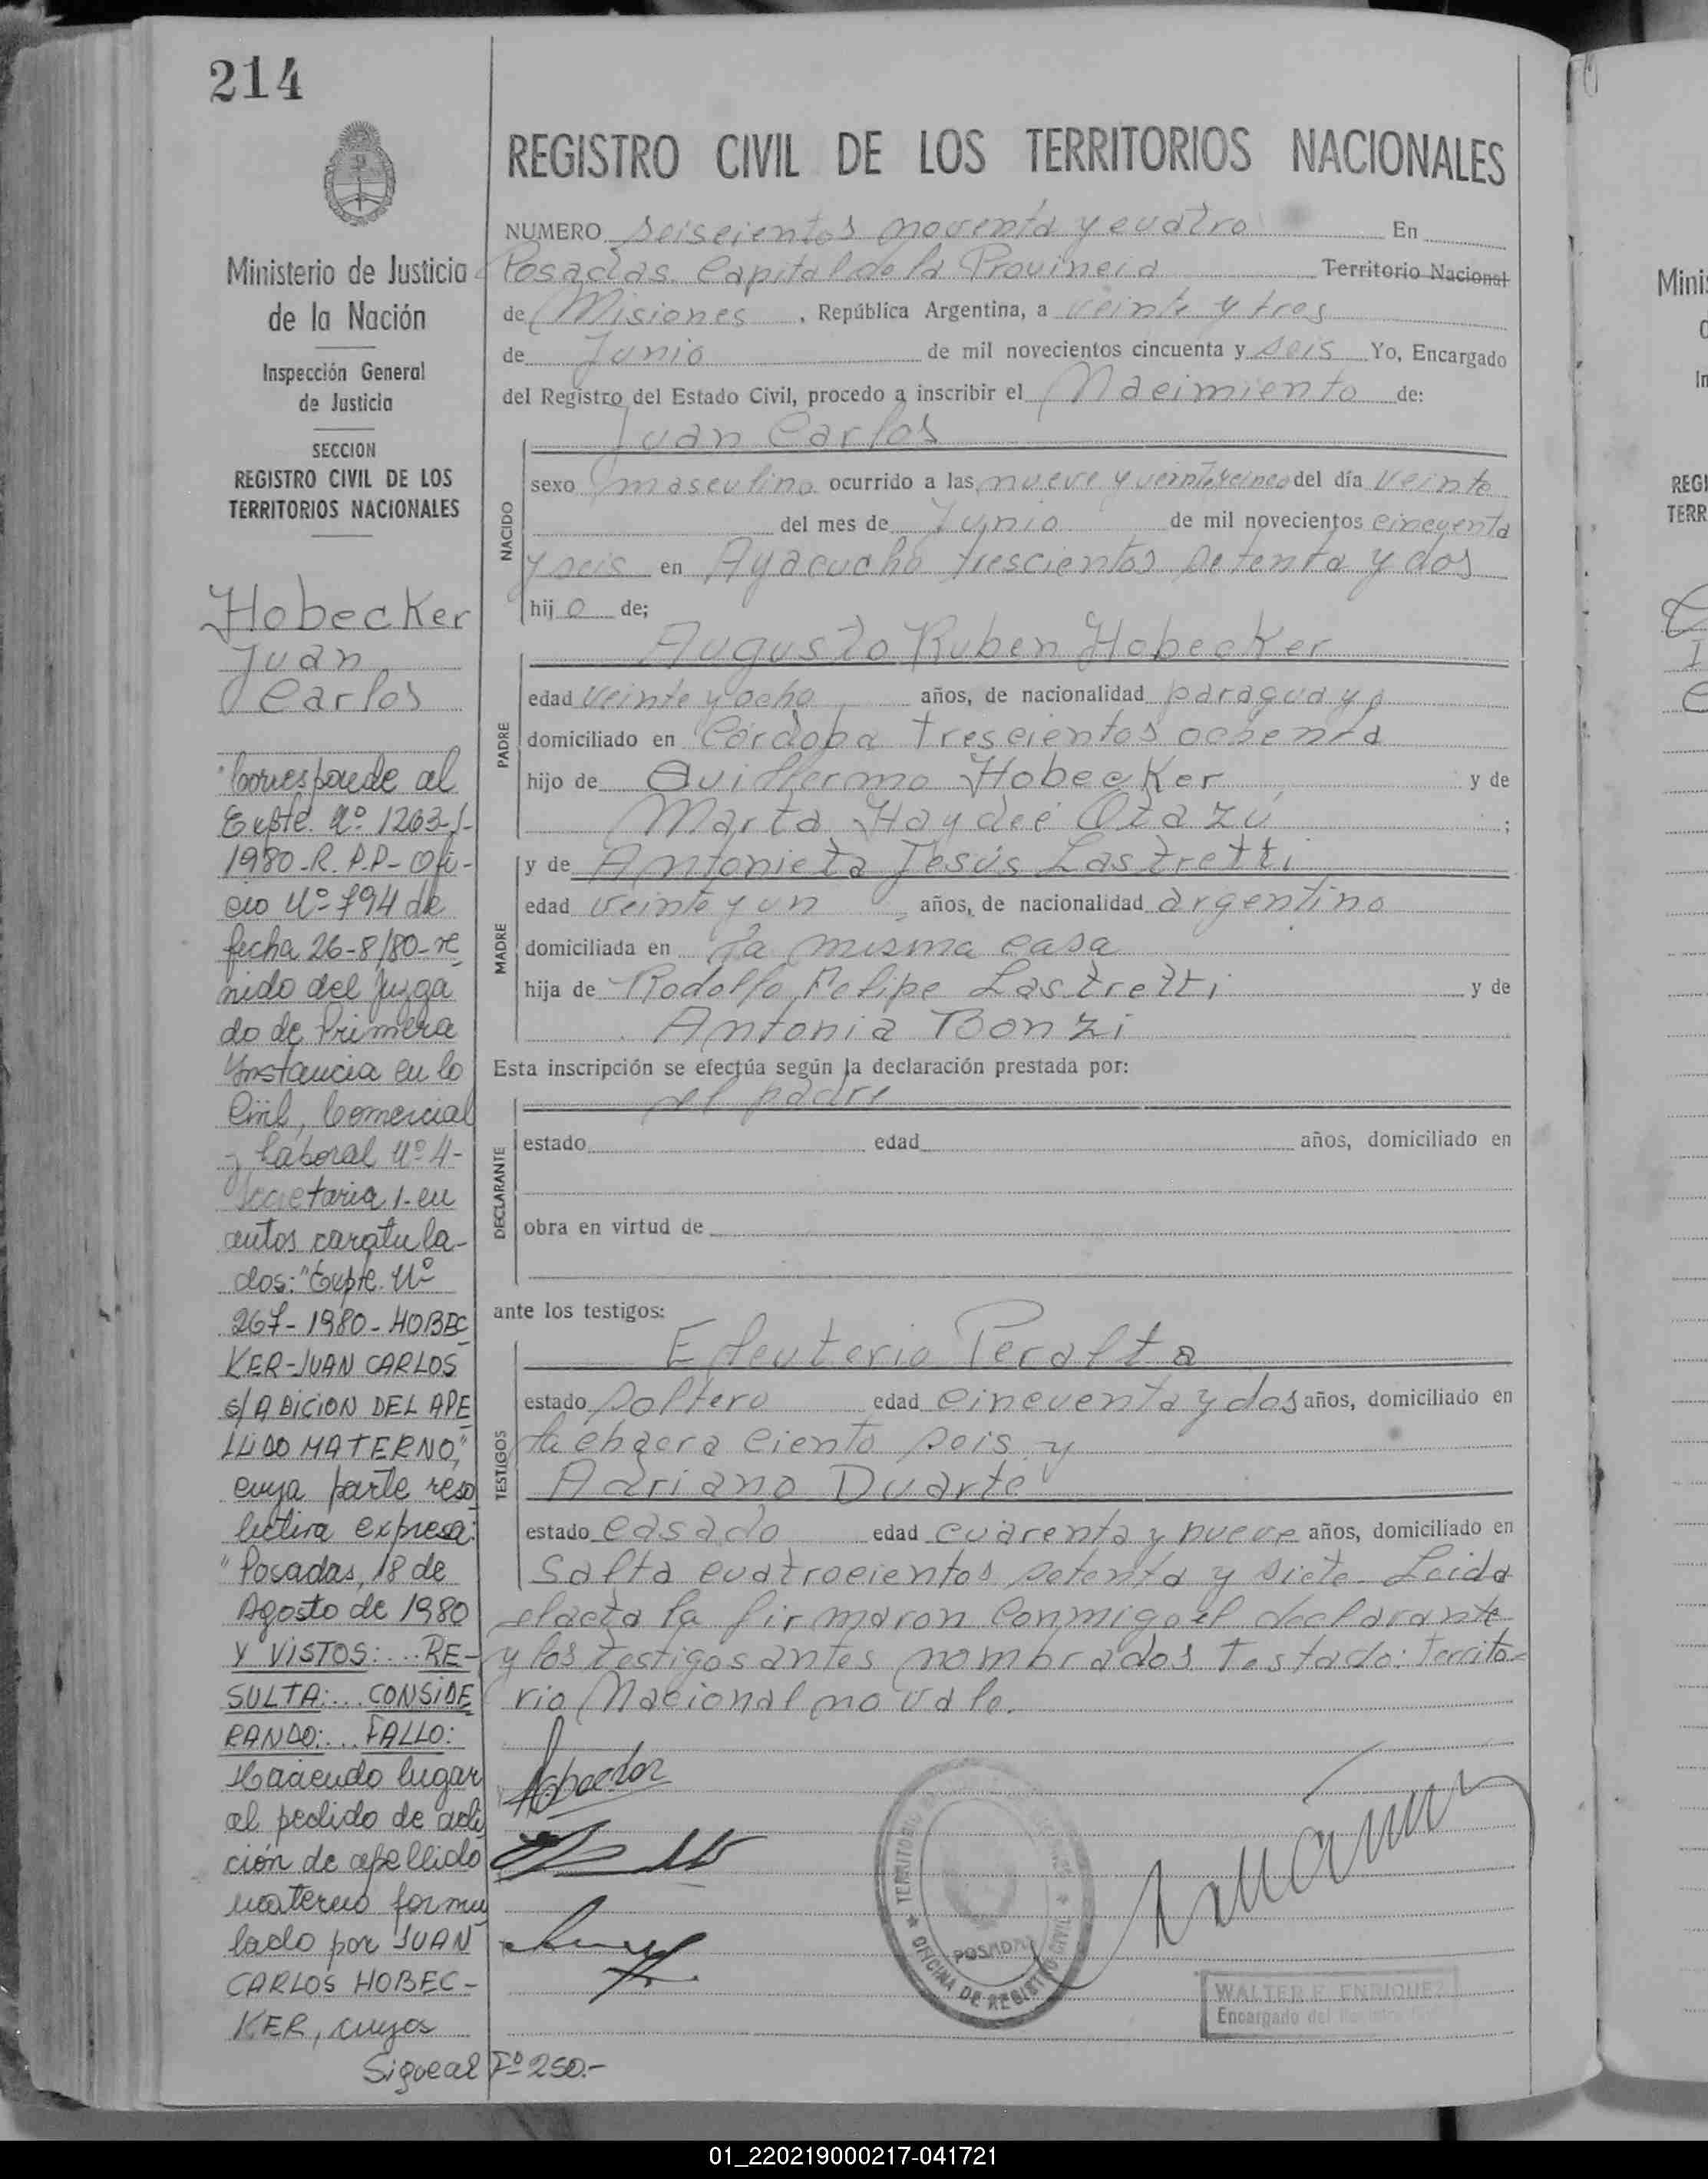 214
Ministerio de Justicia
de la Nación
Inspección General
de Justicia
SECCION
REGISTRO CIVIL DE LOS
TERRITORIOS NACIONALES
Hobecker
Juan
Carlos
Corresponde al
Expte. Nº 1263-J-
1980-R.P.P- Ofi-
cio Nº 794 de
fecha 26-8/80- re
nido del Juzga
do de Primera
Instancia en lo
Civil, Comercial
y Laboral Nº 4-
Secretaria 1- en
autos caratula-
dos: "Expte. Nº
267- 1980- HOBEC
KER-JUAN CARLOS
S/ADICION DEL APE
LLIDO MATERNO",
cuya parte reso
lutiva expresa:
"Posadas, 18 de
Agosto de 1980
Y VISTOS:... RE-
SULTA:... CONSIDE
RANDO:... FALLO:
Haciendo lugar
al pedido de adi
ción de apellido
materno formu
lado por JUAN
CARLOS HOBEC-
KER, cuya
Sigue al Fº 250.-
REGISTRO CIVIL DE LOS TERRITORIOS NACIONALES
NUMERO seiscientos noventa y cuatro En
Posadas Capital de la Provincia Territorio Nacional
de Misiones, República Argentina, a veinte y tres
de Junio de mil novecientos cincuenta y seis Yo, Encargado
del Registro del Estado Civil, procedo a inscribir el Nacimiento de:
Juan Carlos
NACIDO
sexo masculino ocurrido a las nueve y veinticinco del día veinte
del mes de Junio de mil novecientos cincuenta
y seis en Ayacucho trescientos setenta y dos
hijo de;
Augusto Ruben Hobecker
PADRE
edad veinte y ocho años, de nacionalidad paraguayo
domiciliado en Córdoba trescientos ochenta
hijo de Guillermo Hobecker y de
Marta Haydeé Otazú ;
y de Antonieta Jesús Lastretti
MADRE
edad veinte y un años, de nacionalidad argentino
domiciliada en la misma casa
hija de Rodolfo Felipe Lastretti y de
Antonia Bonzi
Esta inscripción se efectúa según la declaración prestada por:
el padre
DECLARANTE
estado edad años, domiciliado en
obra en virtud de
ante los testigos:
Eleuterio Peralta
TESTIGOS
estado soltero edad cincuenta y dos años, domiciliado en
la chacra ciento seis y
Adriano Duarte
estado casado edad cuarenta y nueve años, domiciliado en
Salta cuatrocientos setenta y siete- Leida
el acta la firmaron conmigo el declarante
y los testigos antes nombrados Testado: Territo-
rio Nacional no vale.
TERRITORIO
POSADAS
OFICINA DE REGISTRO CIVIL
WALTER E. ENRIQUEZ
Encargado del Registro Civil
01_220219000217-041721